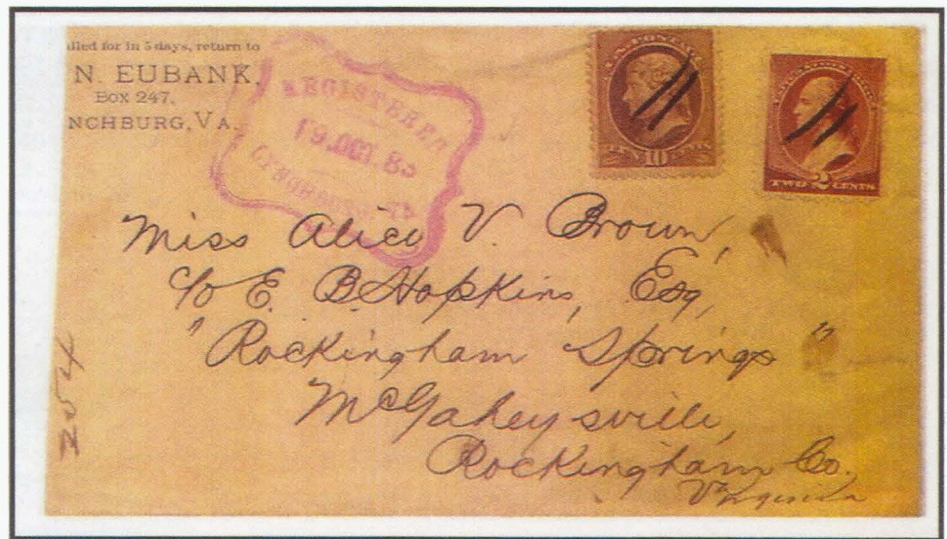 lled for in 5 days, return to
N. EUBANK,
Box 247,
NCHBURG, VA.
REGISTERED
19.OCT.83
LYNCHBURG, VA.
U.S. POSTAGE
TEN 10 CENTS
TWO 2 CENTS
Miss Alice V. Brown,
c/o E. B Hopkins, Esq,
"Rockingham Springs"
McGaheysville,
Rockingham Co.
Virginia
254